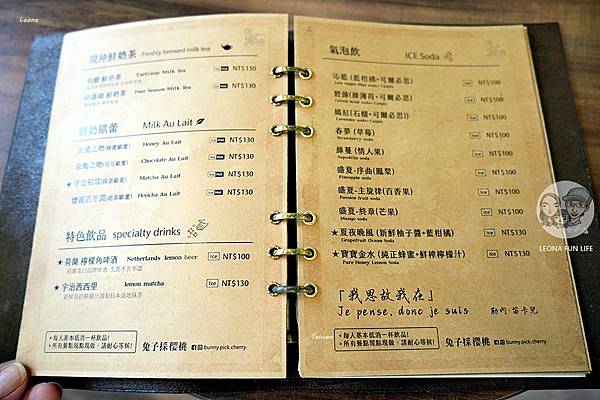 Leona
現沖鮮奶茶 Freshly brewed milk tea
伯爵 鮮奶茶 EarlGrey Milk Tea NT$130
四季韻 鮮奶茶 Four Season Milk Tea NT$130
鮮奶歐蕾 Milk Au Lait
Honey Au Lait NT$130
Chocolate Au Lait NT$130
★ Matcha Au Lait NT$130
Hojicha Au Lait NT$130
特色飲品 specialty drinks
★ 荷蘭 檸檬角啤酒 Netherlands lemon beer Ice NT$100
荷蘭進口品牌啤酒 久置不苦不澀
★ 宇治西西里 lemon matcha Ice NT$130
新鮮現打檸檬汁調和日本宇治抹茶
*每人基本低消一杯飲品!
*所有餐點現點現做,請耐心等候!
兔子採櫻桃 bunny.pick.cherry
氣泡飲 ICE Soda
沁藍 (藍柑橘+可爾必思) Ice NT$100
碧綠 (綠薄荷+可爾必思) Ice NT$100
Green mint soda+ Calpis
嫣紅 (石榴+可爾必思) Ice NT$100
春夢 (草莓) Ice NT$100
Strawberry soda
綠蔓 (情人果) Ice NT$100
Sapodilla soda
盛夏-序曲 (鳳梨) Ice NT$100
Pineapple soda
盛夏-主旋律 (百香果) Ice NT$100
Passion fruit soda
盛夏-終章 (芒果) Ice NT$100
Mango soda
★ 夏夜晚風 (新鮮柚子醬+藍柑橘) Ice NT$130
Grapefruit Ocean Soda
★ 寶寶金水 (純正蜂蜜+鮮榨檸檬汁) Ice NT$130
Pure Honey Lemon Soda
「我思故我在」
Je pense, donc je suis 勒內·笛卡兒
*每人基本低消一杯飲品!
*所有餐點現點現做,請耐心等候!
兔子採櫻桃 bunny.pick.cherry
LEONA FUN LIFE
Taiwan